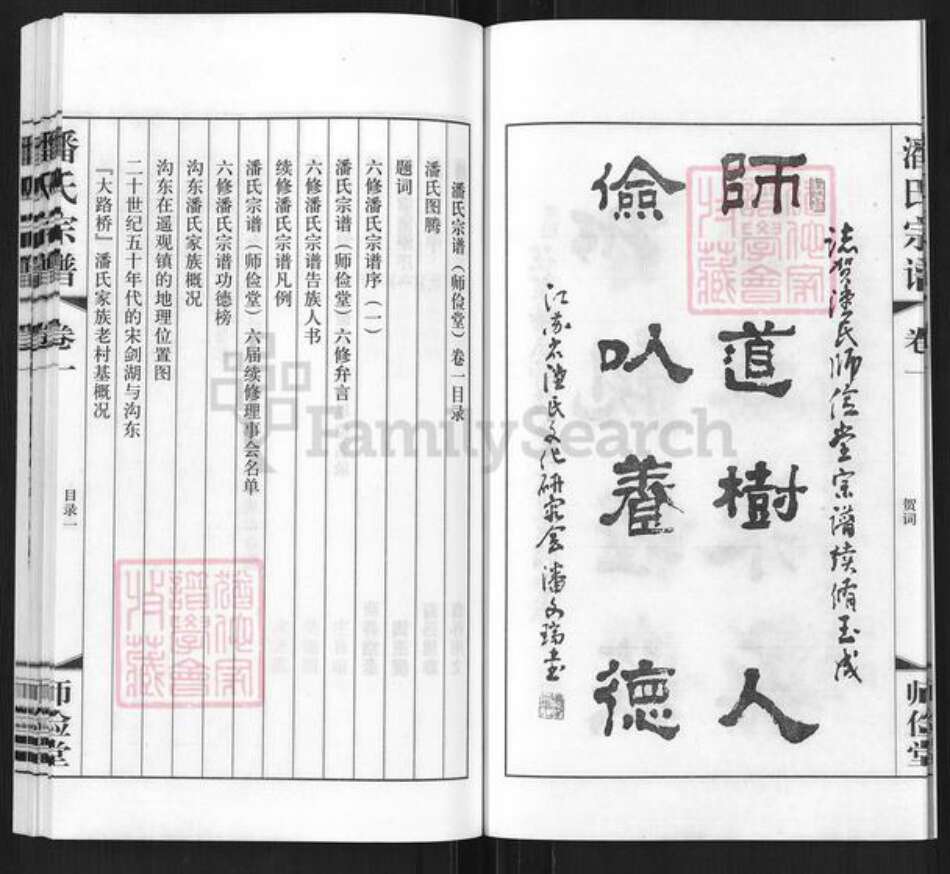 潘氏宗谱
卷一
贺词
师俭堂
志贺潘氏师俭堂宗谱续脩玉成
師道樹人
儉以養德
江苏省潘氏文化研究会 潘文瑞书
潘氏宗谱（师俭堂）卷一目录
潘氏图腾
题词
六修潘氏宗谱序（一）
潘氏宗谱（师俭堂）六修弁言
六修潘氏宗谱告族人书
续修潘氏宗谱凡例
潘氏宗谱（师俭堂）六届续修理事会名单
六修潘氏宗谱功德榜
沟东潘氏家族概况
沟东在遥观镇的地理位置图
二十世纪五十年代的宋剑湖与沟东
『大路桥』潘氏家族老村基概况
潘氏宗谱
卷一
目录一
师俭堂
FamilySearch